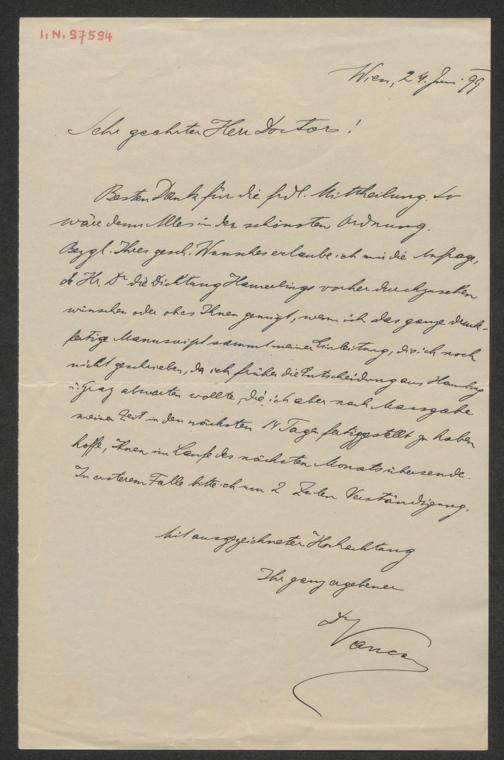 I.N. 97594
Wien, 24. Juni 99
Sehr geehrter Herr Doctor!
Besten Dank für die frdl. Mittheilung. So
wäre denn Alles in der schönsten Ordnung.
Bezgl. Ihres gesch. Wunsches erlaube ich mir die Anfrage,
ob Hr. Dr die Dichtung Hamerlings vorher durchzusehen
wünschen oder ob es Ihnen genügt, wenn ich das ganze druck-
fertige Manuscript sammt meiner Einleitung, die ich noch
nicht geschrieben, da ich früher die Entscheidung aus Hamburg
u. Graz abwarten wollte, die ich aber nach Massgabe
meiner Zeit in den nächsten 14 Tagen fertiggestellt zu haben
hoffe, Ihnen im Laufe des nächsten Monats übersende.
In ersterem Falle bitte ich um 2 Zeilen Verständigung.
Mit ausgezeichneter Hochachtung
Ihr ganz ergebener
Dr Vancsa